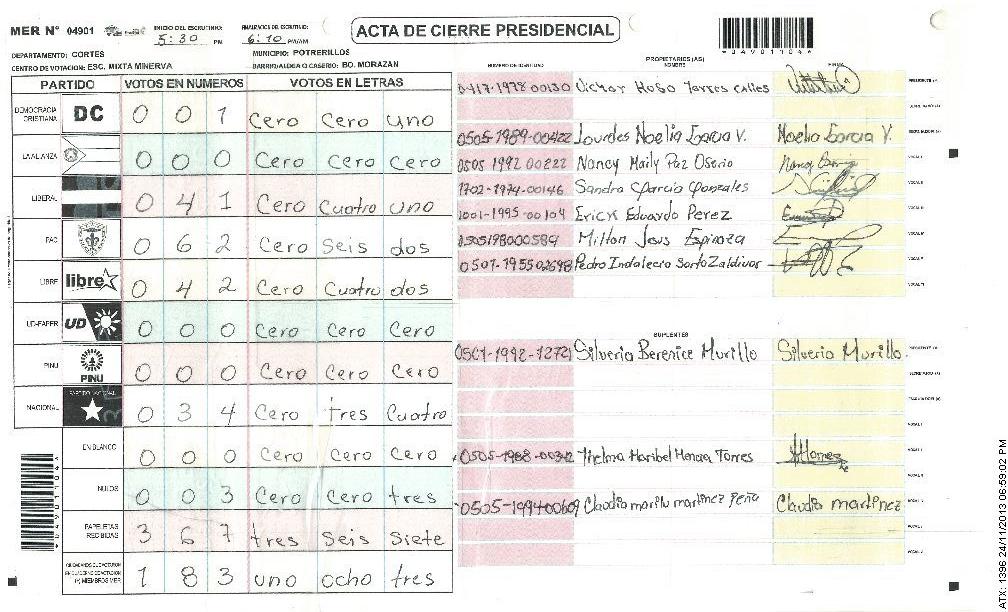 MER Nº 04901 INICIO DEL ESCRUTINIO: 5:30 PM FINALIZACION DEL ESCRUTINIO: 6:10 PM/AM
ACTA DE CIERRE PRESIDENCIAL
DEPARTAMENTO: CORTES MUNICIPIO: POTRERILLOS
CENTRO DE VOTACION: ESC. MIXTA MINERVA BARRIO/ALDEA O CASERIO: BO. MORAZAN
PARTIDO VOTOS EN NUMEROS VOTOS EN LETRAS
DEMOCRACIA CRISTIANA DC 0 0 1 Cero Cero uno
LA ALIANZA 0 0 0 Cero Cero Cero
LIBERAL 0 4 1 Cero Cuatro uno
PAC 0 6 2 Cero Seis dos
LIBRE libre 0 4 2 Cero Cuatro dos
UD-FAPER UD 0 0 0 Cero Cero Cero
PINU PINU 0 0 0 Cero Cero Cero
NACIONAL PARTIDO NACIONAL 0 3 4 Cero tres Cuatro
EN BLANCO 0 0 0 Cero Cero Cero
NULOS 0 0 3 Cero Cero tres
PAPELETAS RECIBIDAS 3 6 7 tres Seis Siete
(+) MIEMBROS MER 1 8 3 uno ocho tres
PROPIETARIOS (AS)
NUMERO DE IDENTIDAD NOMBRE FIRMA
1978-00130 Victor Hugo Torres
0505-1989-00422 Lourdes Noelia Garcia V. Noelia Garcia V.
0505 1992 00222 Nancy Maily Paz Osorio
1702-1974-00146 Sandra Garcia Gonzales
1001-1995-00104 Erick Eduardo Perez
0505198000589 Milton Jesus Espinoza
0507-195502698 Pedro Indalecio Sorto Zaldivar
SUPLENTES
0501-1992-1272 Silveria Berenice Murillo Silveria Murillo
0505-1988-00342 Thelma Maribel Torres
0505-199400609 Claudia marilu martinez Peña Claudia martinez
*04901104*
ATX: 1396 24/11/2013 06:59:02 PM